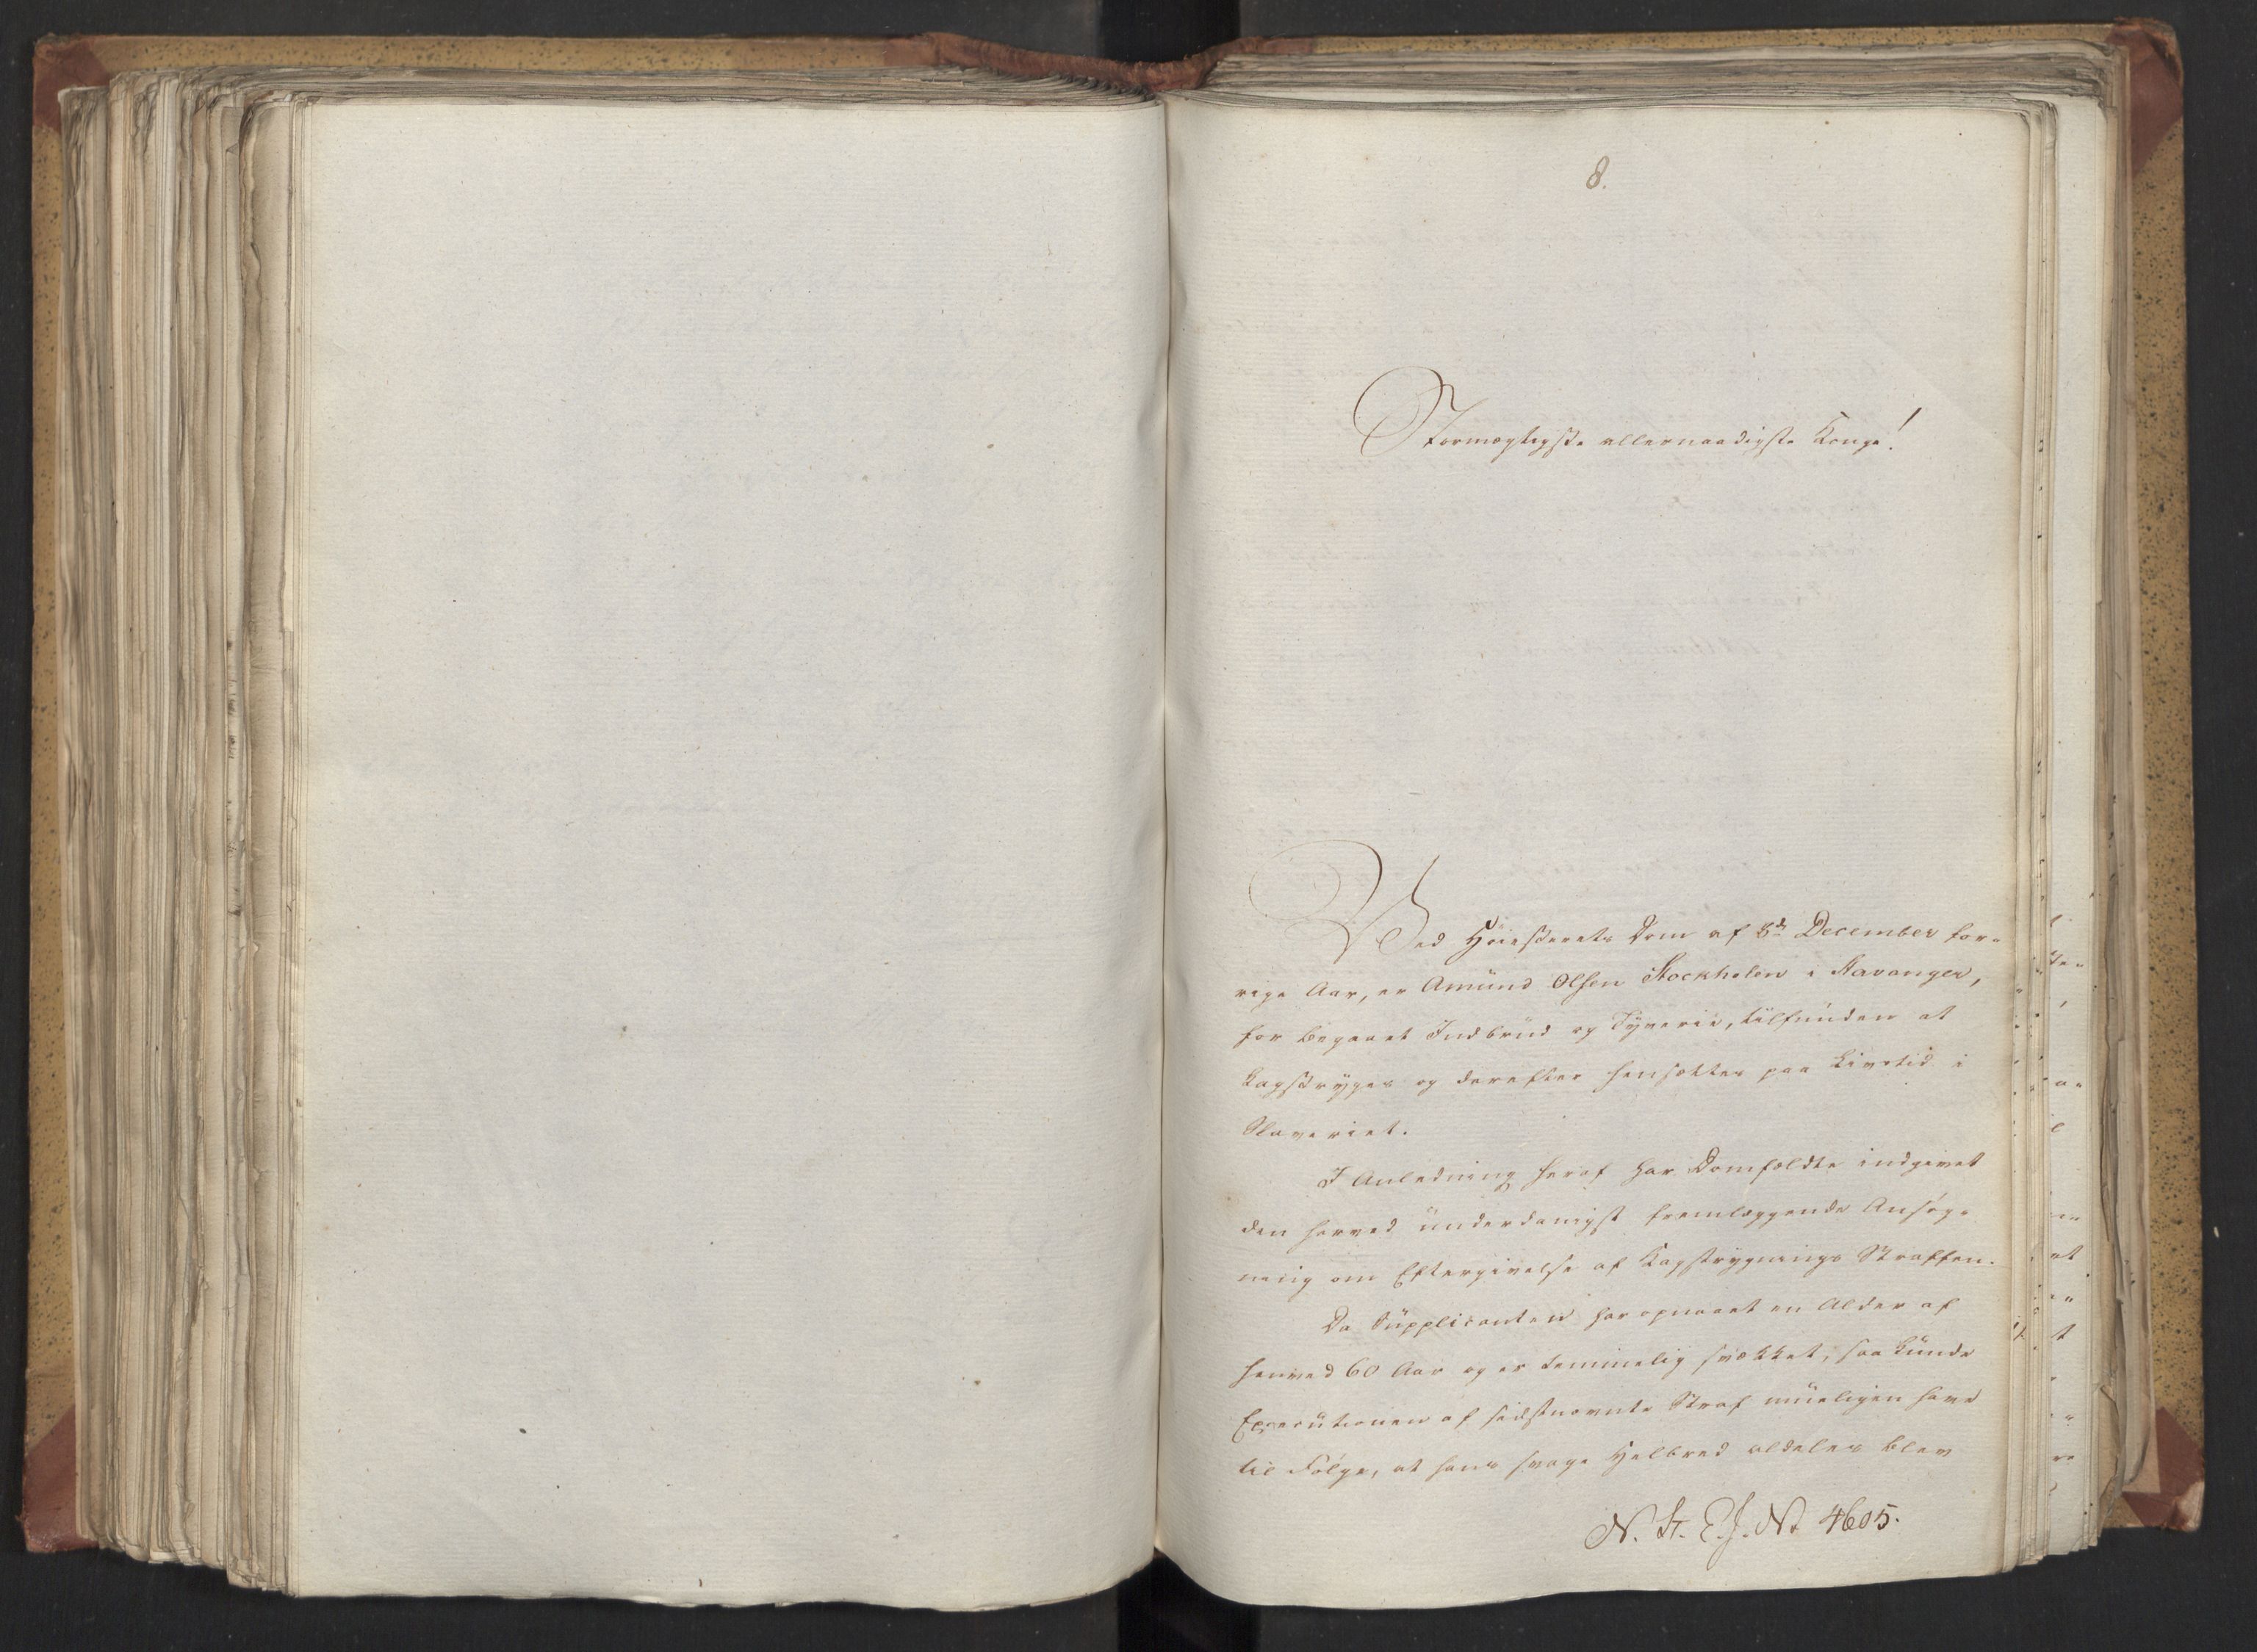 8.
Stormægtigste allernaadigste Konge!
Ved Høiesterets Dom af 8de December for-
rige Aar, er Amund Olsen Stockholen i Stavanger,
for begaaet Indbrud og Tyverie, tilfunden at
kagstryges og derefter hensættes paa Livstid i
Slaveriet.
I Anledning heraf har Domfældte indgivet
den herved underdanigst fremlæggende Ansøg-
ning om Eftergivelse af Kagstrygnings Straffen.
Da Supplicanten har opnaaet en Alder af
henved 60 Aar og er temmelig svækket, saa kunde
Executionen af sidstnævnte Straf mueligen have
til Følge, at hans svage Helbred aldeles blev
N. St. E. J. No 4605.